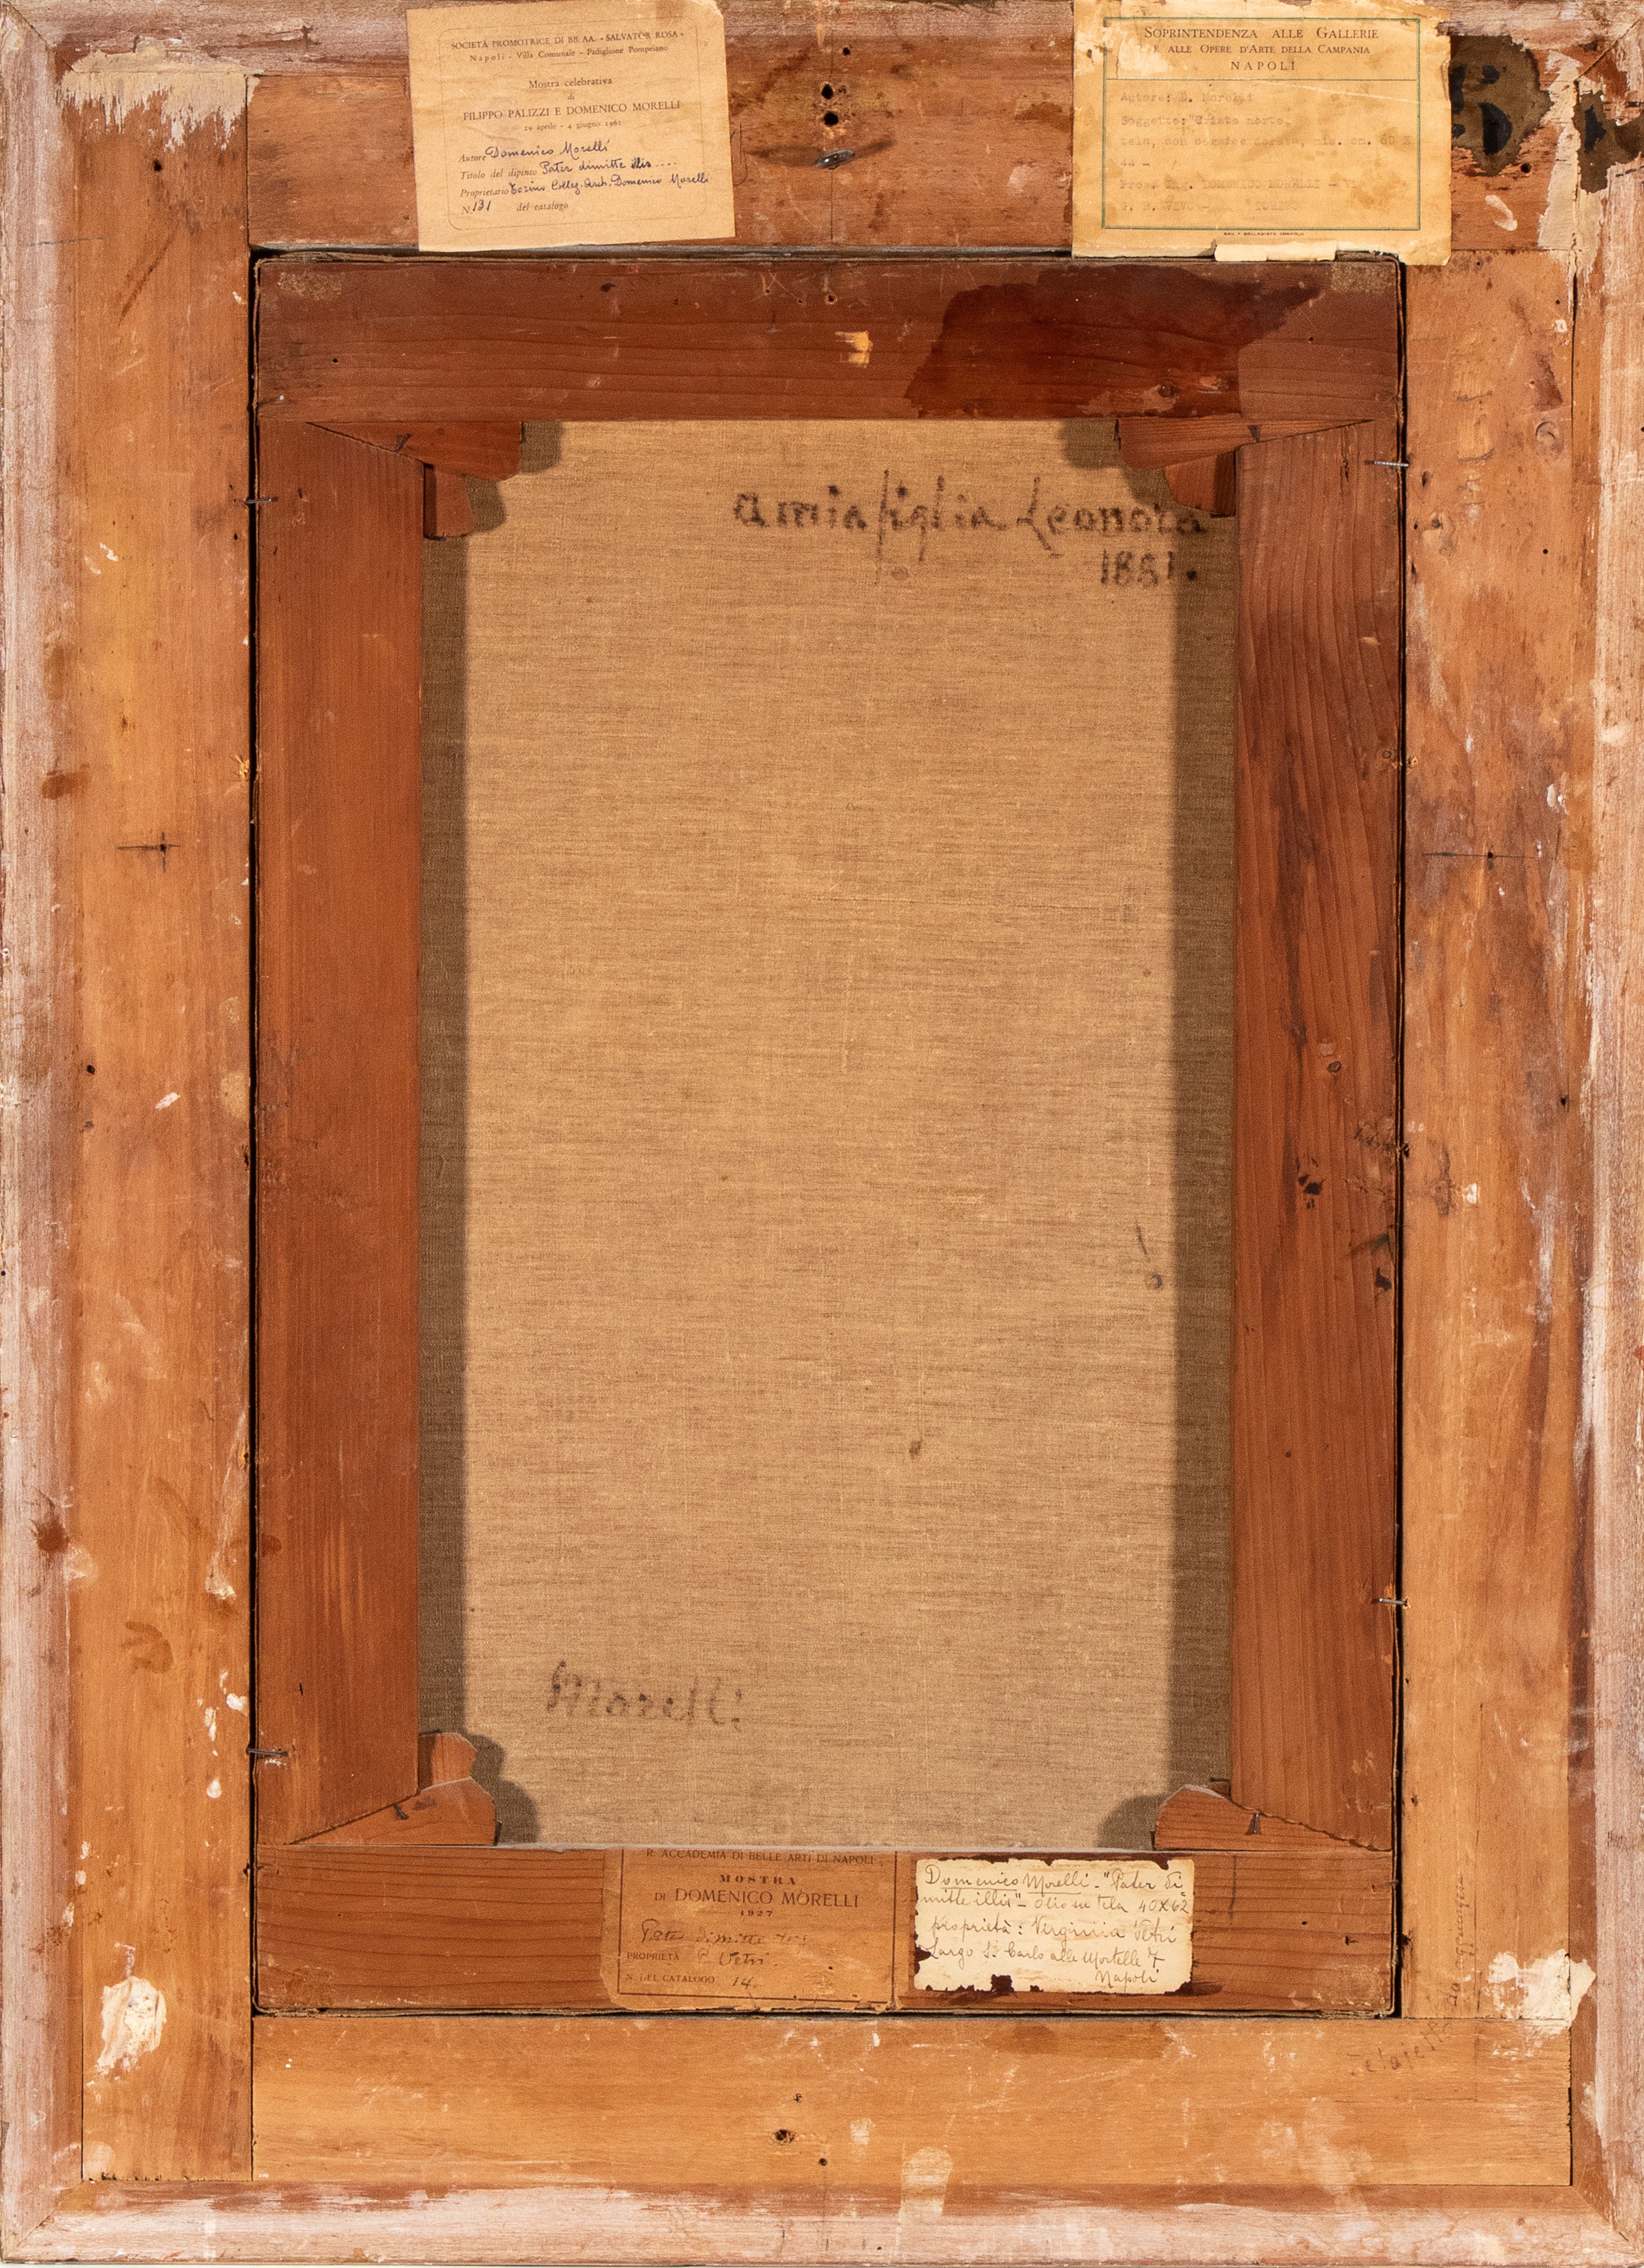 SOCIETÀ PROMOTRICE DI BB. AA. - SALVATOR ROSA -
Napoli - Villa Comunale - Padiglione Pompeiano
Mostra celebrativa
di
FILIPPO PALIZZI E DOMENICO MORELLI
29 aprile - 4 giugno 1961
Autore Domenico Morelli
Titolo del dipinto Pater dimitte illis ....
Proprietario Torino, Colleg. Arch. Domenico Morelli
N. 131 del catalogo
SOPRINTENDENZA ALLE GALLERIE
E ALLE OPERE D'ARTE DELLA CAMPANIA
NAPOLI
Autore: D. Morelli
Soggetto: "Cristo morto,
tela, con cornice dorata, mis. cm. 65 X
44 -
Prop. Ing. DOMENICO MORELLI -
TORINO
a mia figlia Leonora
1881.
Morelli
R. ACCADEMIA DI BELLE ARTI DI NAPOLI
MOSTRA
DI DOMENICO MORELLI
1927
Pater dimitte
PROPRIETÀ Vetri
N. DEL CATALOGO 14
Domenico Morelli - "Pater di
mitte illis" - Olio su tela 40X62
proprietà: Virginia Vetri
Largo S. Carlo alle Mortelle 7
Napoli